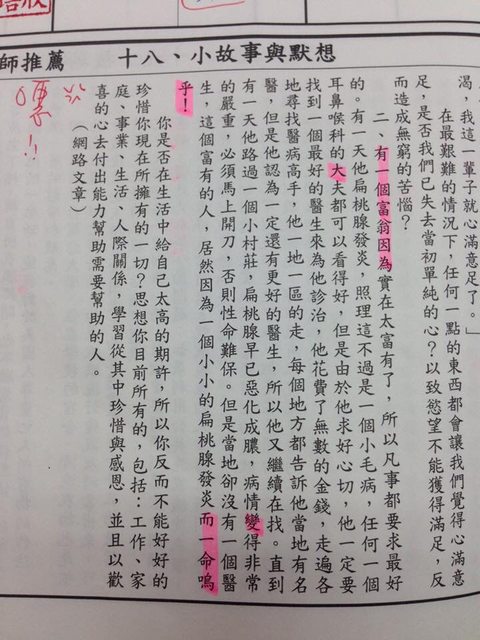 師推薦
十八、小故事與默想
渴，我這一輩子就心滿意足了。」
在最艱難的情況下，任何一點的東西都會讓我們覺得心滿意
足，是否我們已失去當初單純的心？以致慾望不能獲得滿足，反
而造成無窮的苦惱？
二、有一個富翁因為實在太富有了，所以凡事都要求最好
的。有一天他扁桃腺發炎，照理這不過是一個小毛病，任何一個
耳鼻喉科的大夫都可以看得好，但是由於他求好心切，他一定要
找到一個最好的醫生來為他診治，他花費了無數的金錢，走遍各
地尋找醫病高手，他一地一區的走，每個地方都告訴他當地有名
醫，但是他認為一定還有更好的醫生，所以他又繼續在找。直到
有一天他路過一個小村莊，扁桃腺早已惡化成膿，病情變得非常
的嚴重，必須馬上開刀，否則性命難保。但是當地卻沒有一個醫
生，這個富有的人，居然因為一個小小的扁桃腺發炎而一命嗚
乎！
你是否在生活中給自己太高的期許，所以你反而不能好好的
珍惜你現在所擁有的一切？思想你目前所有的，包括：工作、家
庭、事業、生活、人際關係，學習從其中珍惜與感恩，並且以歡
喜的心去付出能力幫助需要幫助的人。
（網路文章）